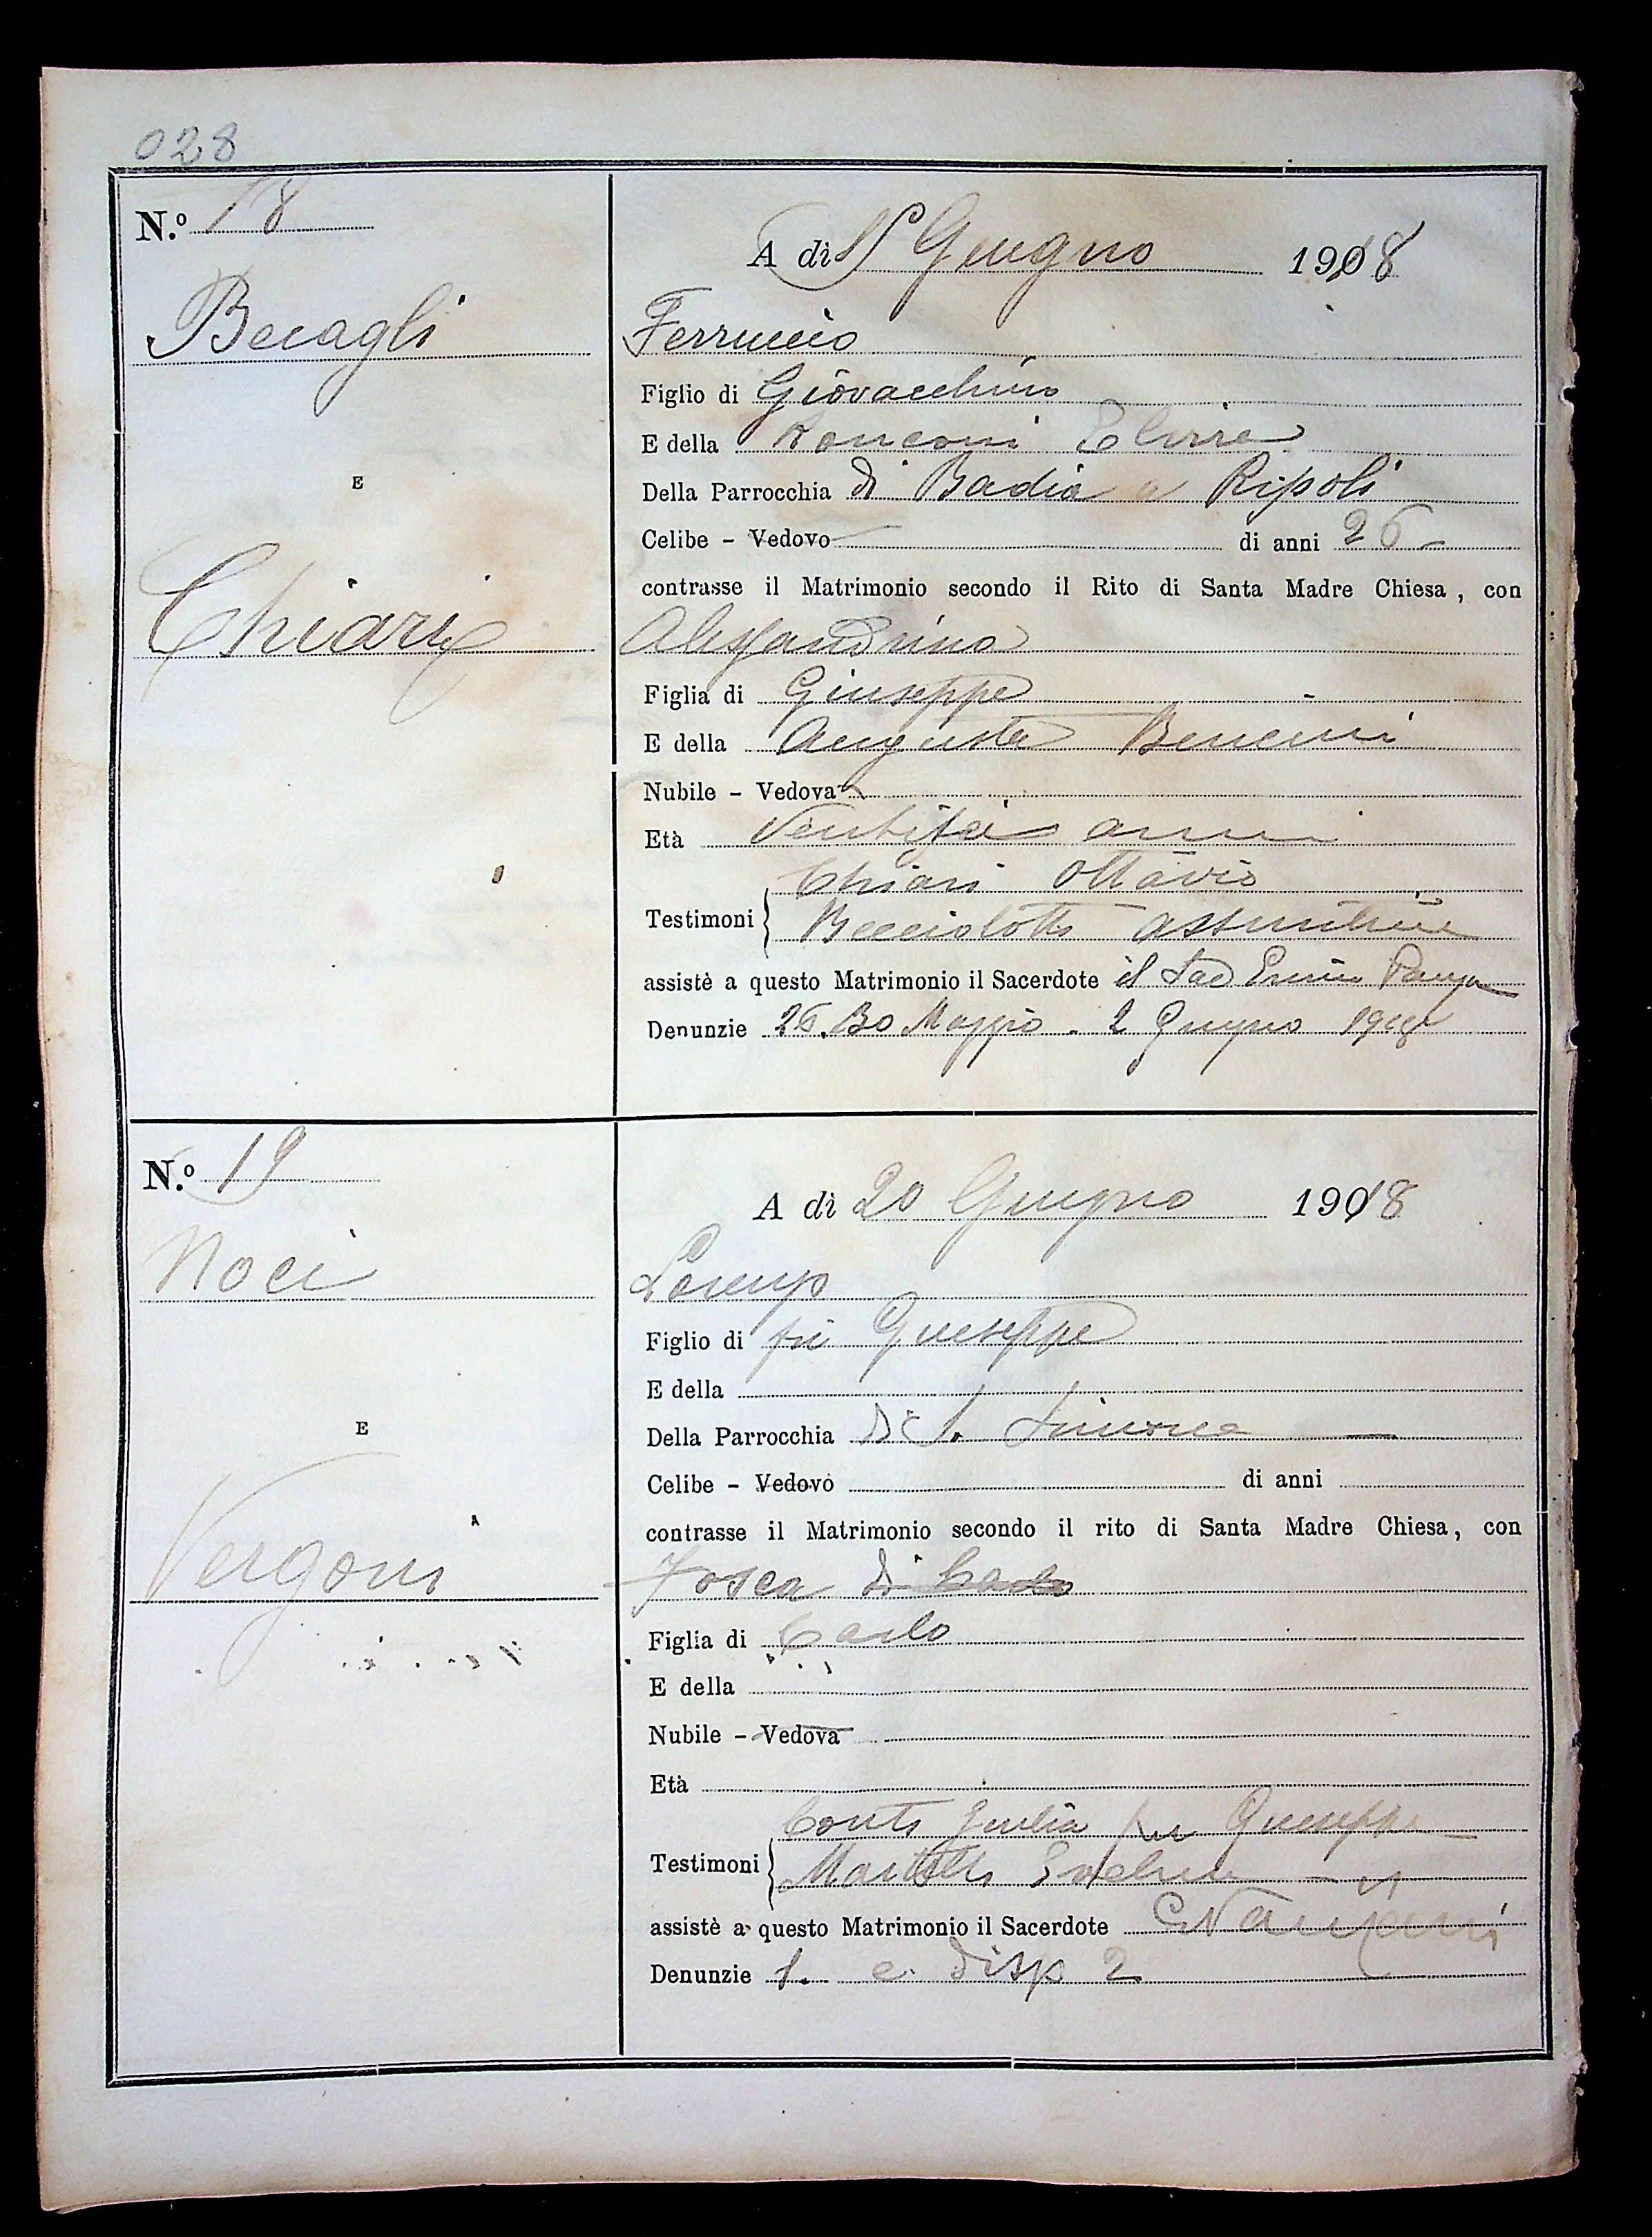 028
N.º 18
A dì Giugno 1918
Becagli
Ferruccio
Figlio di Giovacchino
E della Ronconi Elvira
Della Parrocchia di Badia a Ripoli
E
Celibe - Vedovo di anni 26
contrasse il Matrimonio secondo il Rito di Santa Madre Chiesa, con
Chiari
Alessandrina
Figlia di Giuseppe
E della Augusta Bencini
Nubile - Vedova
Età Ventisei anni
Chiari Ottavio
Testimoni
Becciolotti Assuntina
assistè a questo Matrimonio il Sacerdote il Sac
Denunzie 26. 30 Maggio - 2 Giugno 1918
N.º 19
A dì 20 Giugno 1918
Noci
Lorenzo
Figlio di fu Giuseppe
E della
Della Parrocchia Di S. Simone
E
Celibe - Vedovo di anni
contrasse il Matrimonio secondo il rito di Santa Madre Chiesa, con
Vergoni
Tosca di Carlo
Figlia di Carlo
E della
Nubile - Vedova
Età
Conti Giulia fu Giuseppe
Testimoni
Martelli
assistè a questo Matrimonio il Sacerdote
Denunzie 1. e disp 2